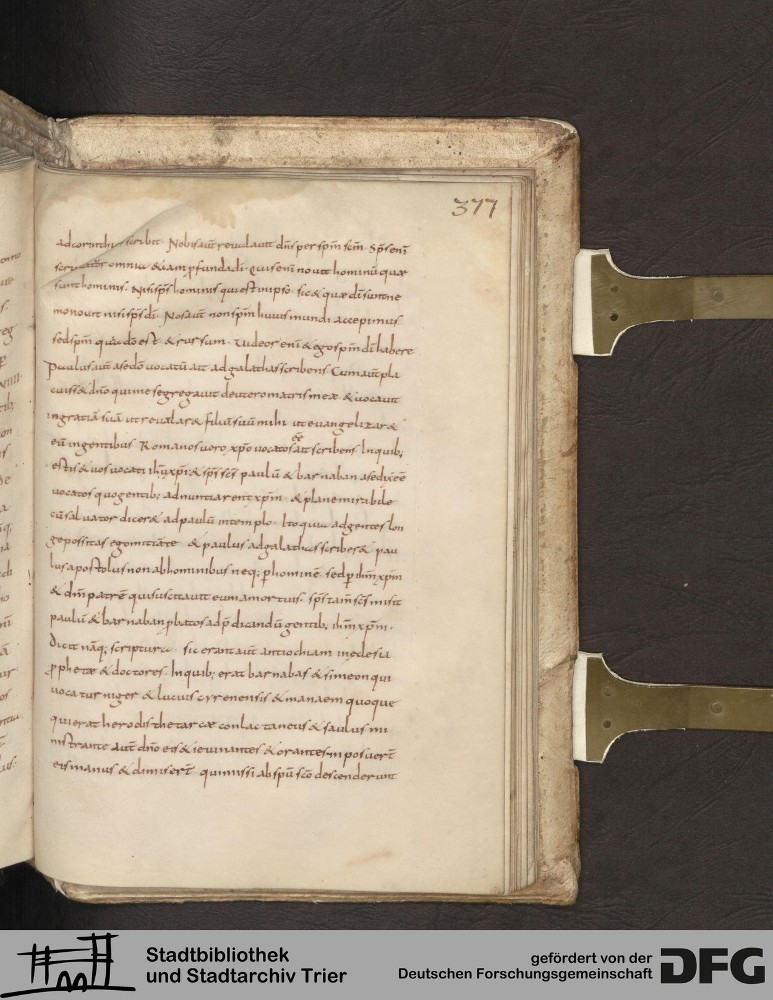 377
ad corinthios scribit. Nobis aut̄ revelavit d̄ns per sp̄m sc̄m. Sp̄s eni͞
scrutator omniū &iam ꝓfunda d̄i. Quis eni͞ novit hominū quæ
sunt hominis. Nisi sp̄s hominis qui est in ipso. sic & quæ d̄i sunt ne
mo novit nisi sp̄s d̄i. Nos aut̄ non sp̄m huius mundi accepimus
sed sp̄m qui a d̄o est. & rursum. Videor eni͞ & ego sp̄m d̄i habere
Paulus aut̄ a se d̄o vocatū ait ad galathas scribens. Cum aut̄ pla
cuisset d̄no qui me segregavit de utero matris meæ & vocavit
in gratiā suā ut revelar& filiū suū mihi ut evangelizar&
eū in gentibus. Romanos vero xp̄o vocatos ēe ait scribens. In quib;
estis & vos vocati ih̄u xp̄i & sp̄s sc̄s paulū & barnaban a se dix̄ ēe
vocatos quo gentib; adnuntiarent xp̄m. & plane mirabile
cū salvator dicer& ad paulū in templo. Ito quia ad gentes lon
ge positas ego mitta te & paulus ad galathas scriber& pau
lus apostolus non ab hominibus neq; ꝑ hominē. sed ꝑ ih̄m xp̄m
& d̄m patrē qui suscitavit eum a mortuis. sp̄s tam̄ sc̄s misit
paulū & barnaban ꝓbatos ad p̄dicandū gentib; ih̄m xp̄m.
Dicit nāq; scriptura. sic erant aut̄ antiochiam in eclesia
ꝓphetæ & doctores. In quib; erat barnabas & simeon qui
vocatur niger & lucius cyrenensis & manaem quoque
qui erat herodis thetarcæ conlactaneus & saulus mi
nistrante aut̄ d̄no eis & ieiunantes & orantes inposuer̄t
eis manus & dimiser̄t qui missi ab sp̄u sc̄o descenderunt
Stadtbibliothek
und Stadtarchiv Trier
gefördert von der
Deutschen Forschungsgemeinschaft
DFG